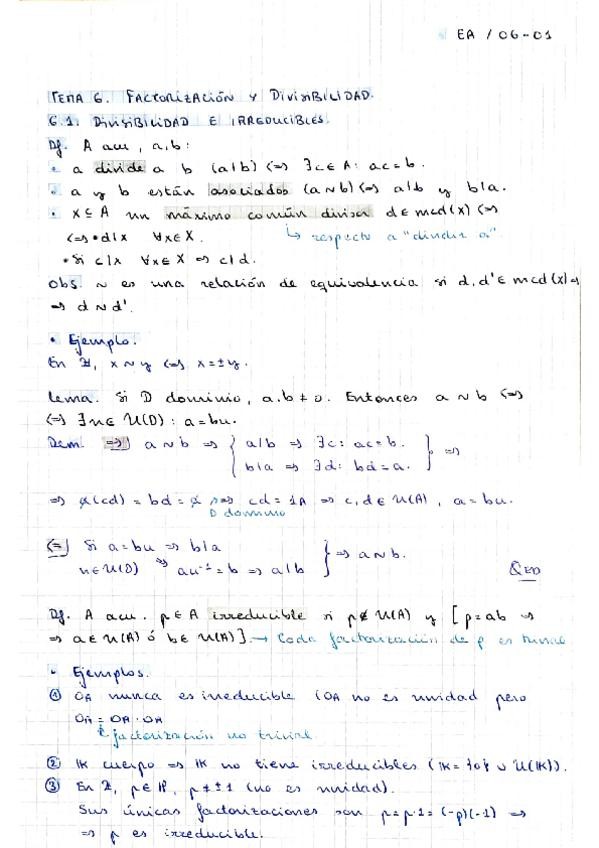 EA / 06-01
TEMA 6. FACTORIZACIÓN Y DIVISIBILIDAD.
6.1. DIVISIBILIDAD E IRREDUCIBLES.
Df. A acu, a,b:
• a divide a b (a|b) <=> ∃c∈A: ac=b.
• a y b están asociados (a~b) <=> a|b y b|a.
• X⊆A un máximo común divisor d∈mcd(X) <=>
<=> • d|x ∀x∈X. ↳ respecto a "dividir a".
• Si c|x ∀x∈X => c|d.
Obs. ~ es una relación de equivalencia si d,d'∈mcd(X) =>
=> d~d'.
• Ejemplo.
En ℤ, x~y <=> x=±y.
Lema. Si D dominio, a,b≠0. Entonces a~b <=>
<=> ∃u∈U(D): a=bu.
Dem. =>) a~b => { a|b => ∃c: ac=b.
b|a => ∃d: bd=a. } =>
=> a(cd) = bd = a => cd=1A => c,d∈U(A), a=bu.
D dominio
<=) Si a=bu => b|a
u∈U(D) => au⁻¹=b => a|b } => a~b.
QED
Df. A acu. p∈A irreducible si p∉U(A) y [p=ab =>
=> a∈U(A) ó b∈U(A)]. → Cada factorización de p es trivial
• Ejemplos.
① 0A nunca es irreducible (0A no es unidad pero
0A = 0A · 0A
↳ factorización no trivial.
② K cuerpo => K no tiene irreducibles (K={0}∪U(K)).
③ En ℤ, p∈ℙ, p≠±1 (no es unidad).
Sus únicas factorizaciones son p=p·1=(-p)(-1) =>
=> p es irreducible.